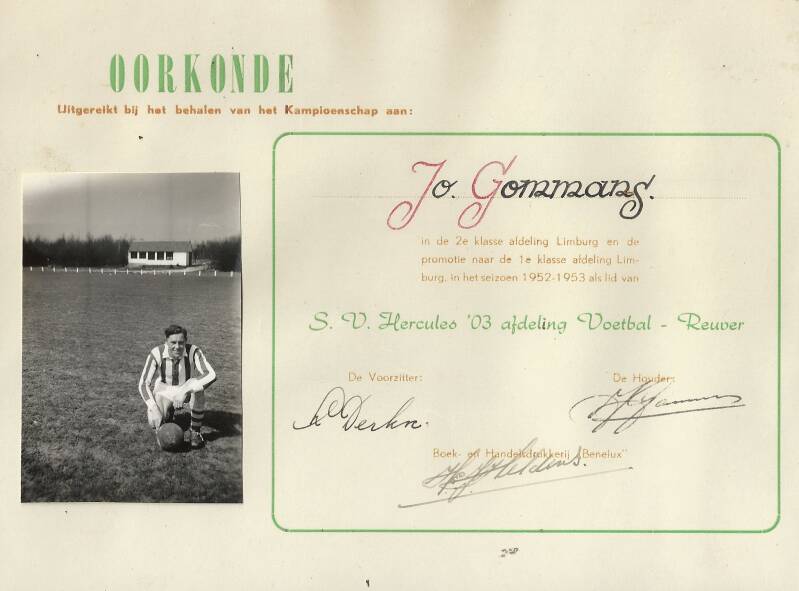 OORKONDE
Uitgereikt bij het behalen van het Kampioenschap aan:
Jo. Gommans.
in de 2e klasse afdeling Limburg en de
promotie naar de 1e klasse afdeling Lim-
burg, in het seizoen 1952-1953 als lid van
S. V. Hercules '03 afdeling Voetbal - Reuver
De Voorzitter: De Houder:
Derkn.
Boek- en Handelsdrukkerij "Benelux"
Heldens.